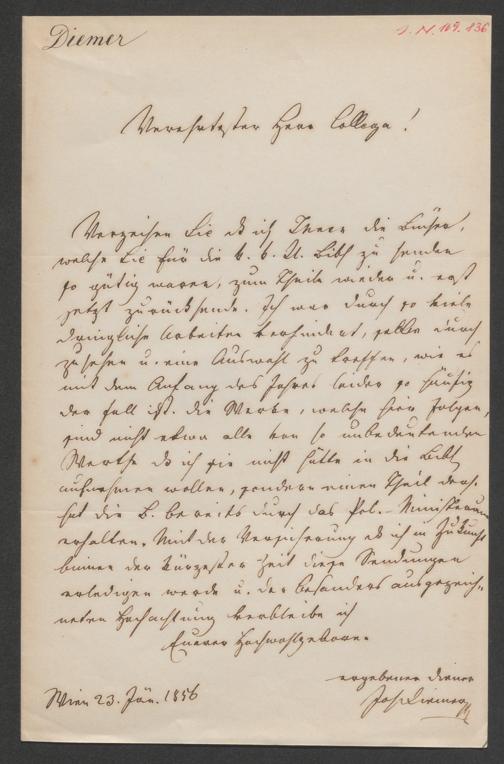 Diemer
J. N. 169.836
Verehrtester Herr Collega!
Verzeihen Sie daß ich Ihnen die Bücher,
welche Sie für die k. k. U. Bibl zu senden
so gütig waren, zum Theile wieder u. erst
jetzt zurücksende. Ich war durch so viele
dringliche Arbeiten verhindert, selbe durch
zusehen u. eine Auswahl zu treffen, wie es
mit dem Anfang des Jahres leider so häufig
der Fall ist. Die Werke, welche hier folgen,
sind nicht etwa alle von so unbedeutendem
Werthe daß ich sie nicht hätte in die Bibl
aufnehmen wollen, sondern einen Theil ders.
hat die B. bereits durch das Pol.-Ministerium
erhalten. Mit der Versicherung daß ich in Zukunft
binnen der kürzesten Zeit diese Sendungen
erledigen werde u. der besonders ausgezeich-
neten Hochachtung verbleibe ich
Euerer Hochwohlgeboren
ergebener Diener
Jos. Diemer
Wien 23. Jän. 1856